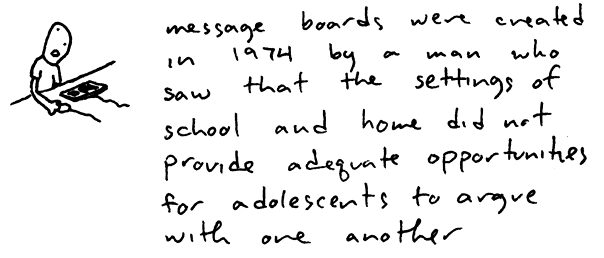 message boards were created
in 1974 by a man who
saw that the settings of
school and home did not
provide adequate opportunities
for adolescents to argue
with one another